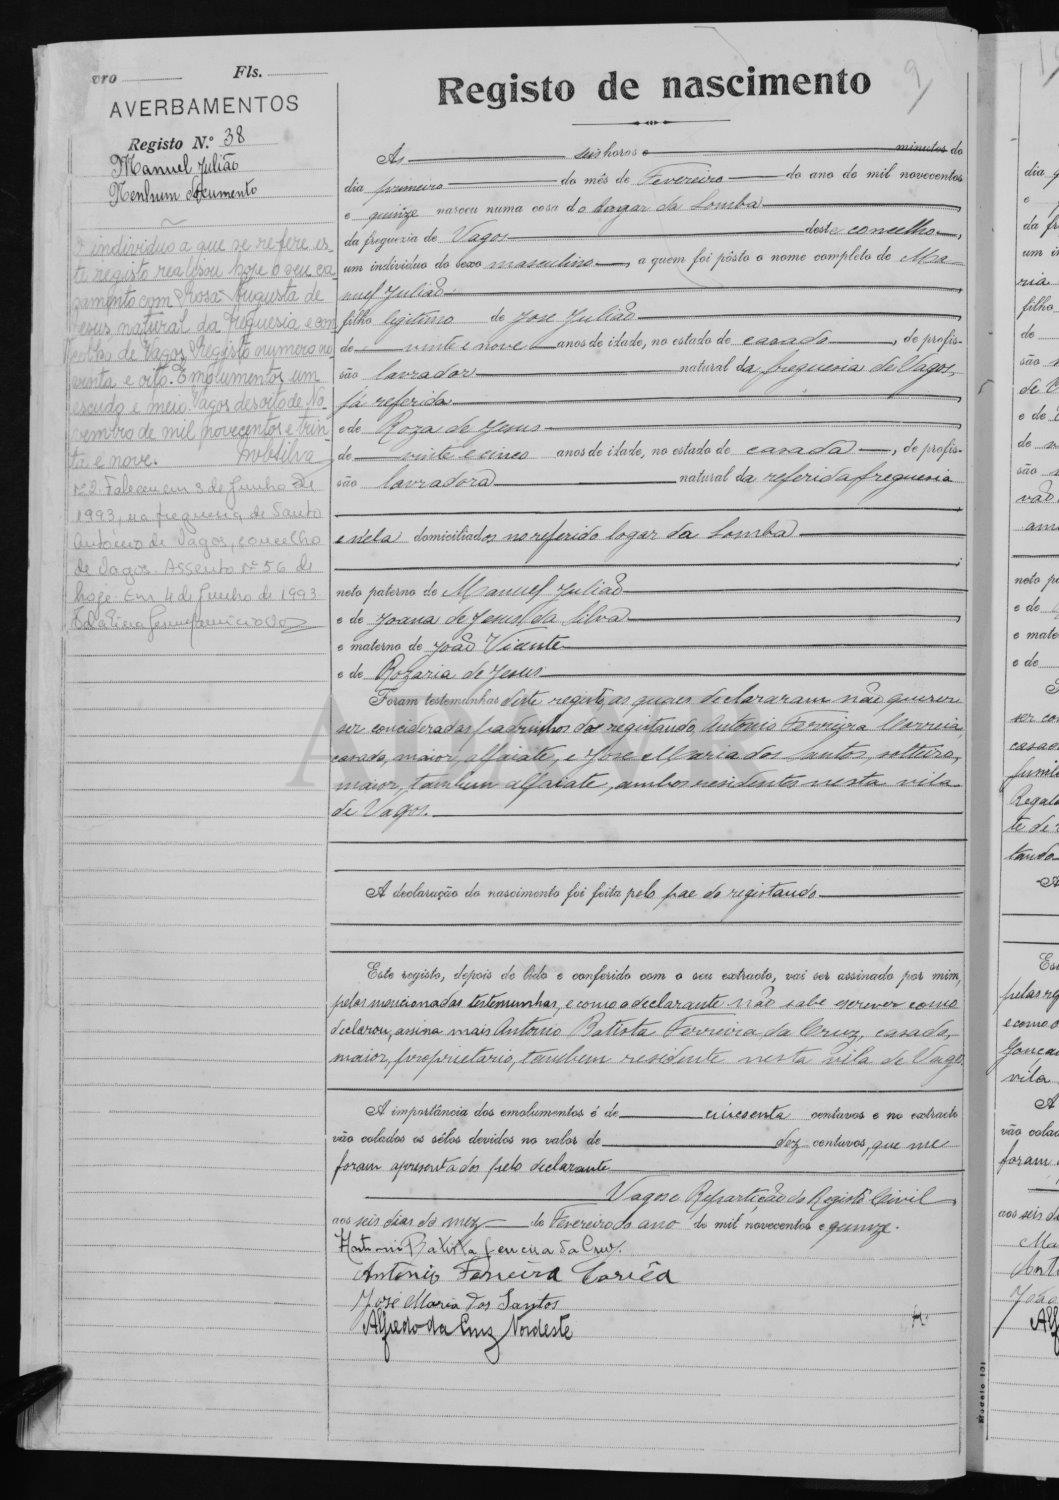 vro Fls.
AVERBAMENTOS
Registo N.º 38
Manuel Julião
Nenhum documento
O individuo a que se refere es-
te registo realisou hoje o seu ca-
samento com Rosa Augusta de
Jesus natural da freguesia e con-
celho de Vagos. Registo numero no-
venta e oito. Emolumentos um
escudo e meio. Vagos desoito de No-
vembro de mil novecentos e trin-
ta e nove.
Nº 2. Faleceu em 3 de Junho de
1993, na freguesia de Santo
António de Vagos, concelho
de Vagos. Assento nº 56 de
hoje. Em 4 de Junho de 1993
Registo de nascimento
9
Às seis horas e minutos do
dia primeiro do mês de Fevereiro do ano de mil novecentos
e quinze nasceu numa casa do logar da Lomba
da freguezia de Vagos deste concelho,
um individuo do sexo masculino, a quem foi pôsto o nome completo de Ma-
nuel Julião
filho legitimo de José Julião
de vinte e nove anos de idade, no estado de casado, de profis-
são lavrador natural da freguesia de Vagos,
já referida
e de Roza de Jesus
de vinte e cinco anos de idade, no estado de casada, de profis-
são lavradora natural da referida freguesia
e nela domiciliados no referido logar da Lomba
neto paterno de Manuel Julião
e de Joana de Jesus da Silva
e materno de João Vicente
e de Rozaria de Jesus
Foram testemunhas deste registo, as quaes declararam não querer
ser consideradas padrinhos do registando, Antonio Ferreira Correia,
casado, maior, alfaiate, e José Maria dos Santos, solteiro,
maior, tambem alfaiate, ambos residentes nesta vila
de Vagos.
A declaração do nascimento foi feita pelo pae do registando
Este registo, depois de lido e conferido com o seu extracto, vai ser assinado por mim,
pelas mencionadas testemunhas, e como a declarante não sabe escrever como
declarou, assina mais Antonio Batista Ferreira da Cruz, casado,
maior, proprietario, tambem residente nesta vila de Vagos.
A importância dos emolumentos é de cincoenta centavos e no extracto
vão colados os sêlos devidos no valor de dez centavos, que me
foram apresentados pelo declarante
Vagos e Repartição do Registo Civil,
aos seis dias do mez de Fevereiro do ano de mil novecentos e quinze.
Antonio Batista Ferreira da Cruz.
António Ferreira Corrêa
José Maria dos Santos
Alfredo da Cruz Nordeste
Modelo 101